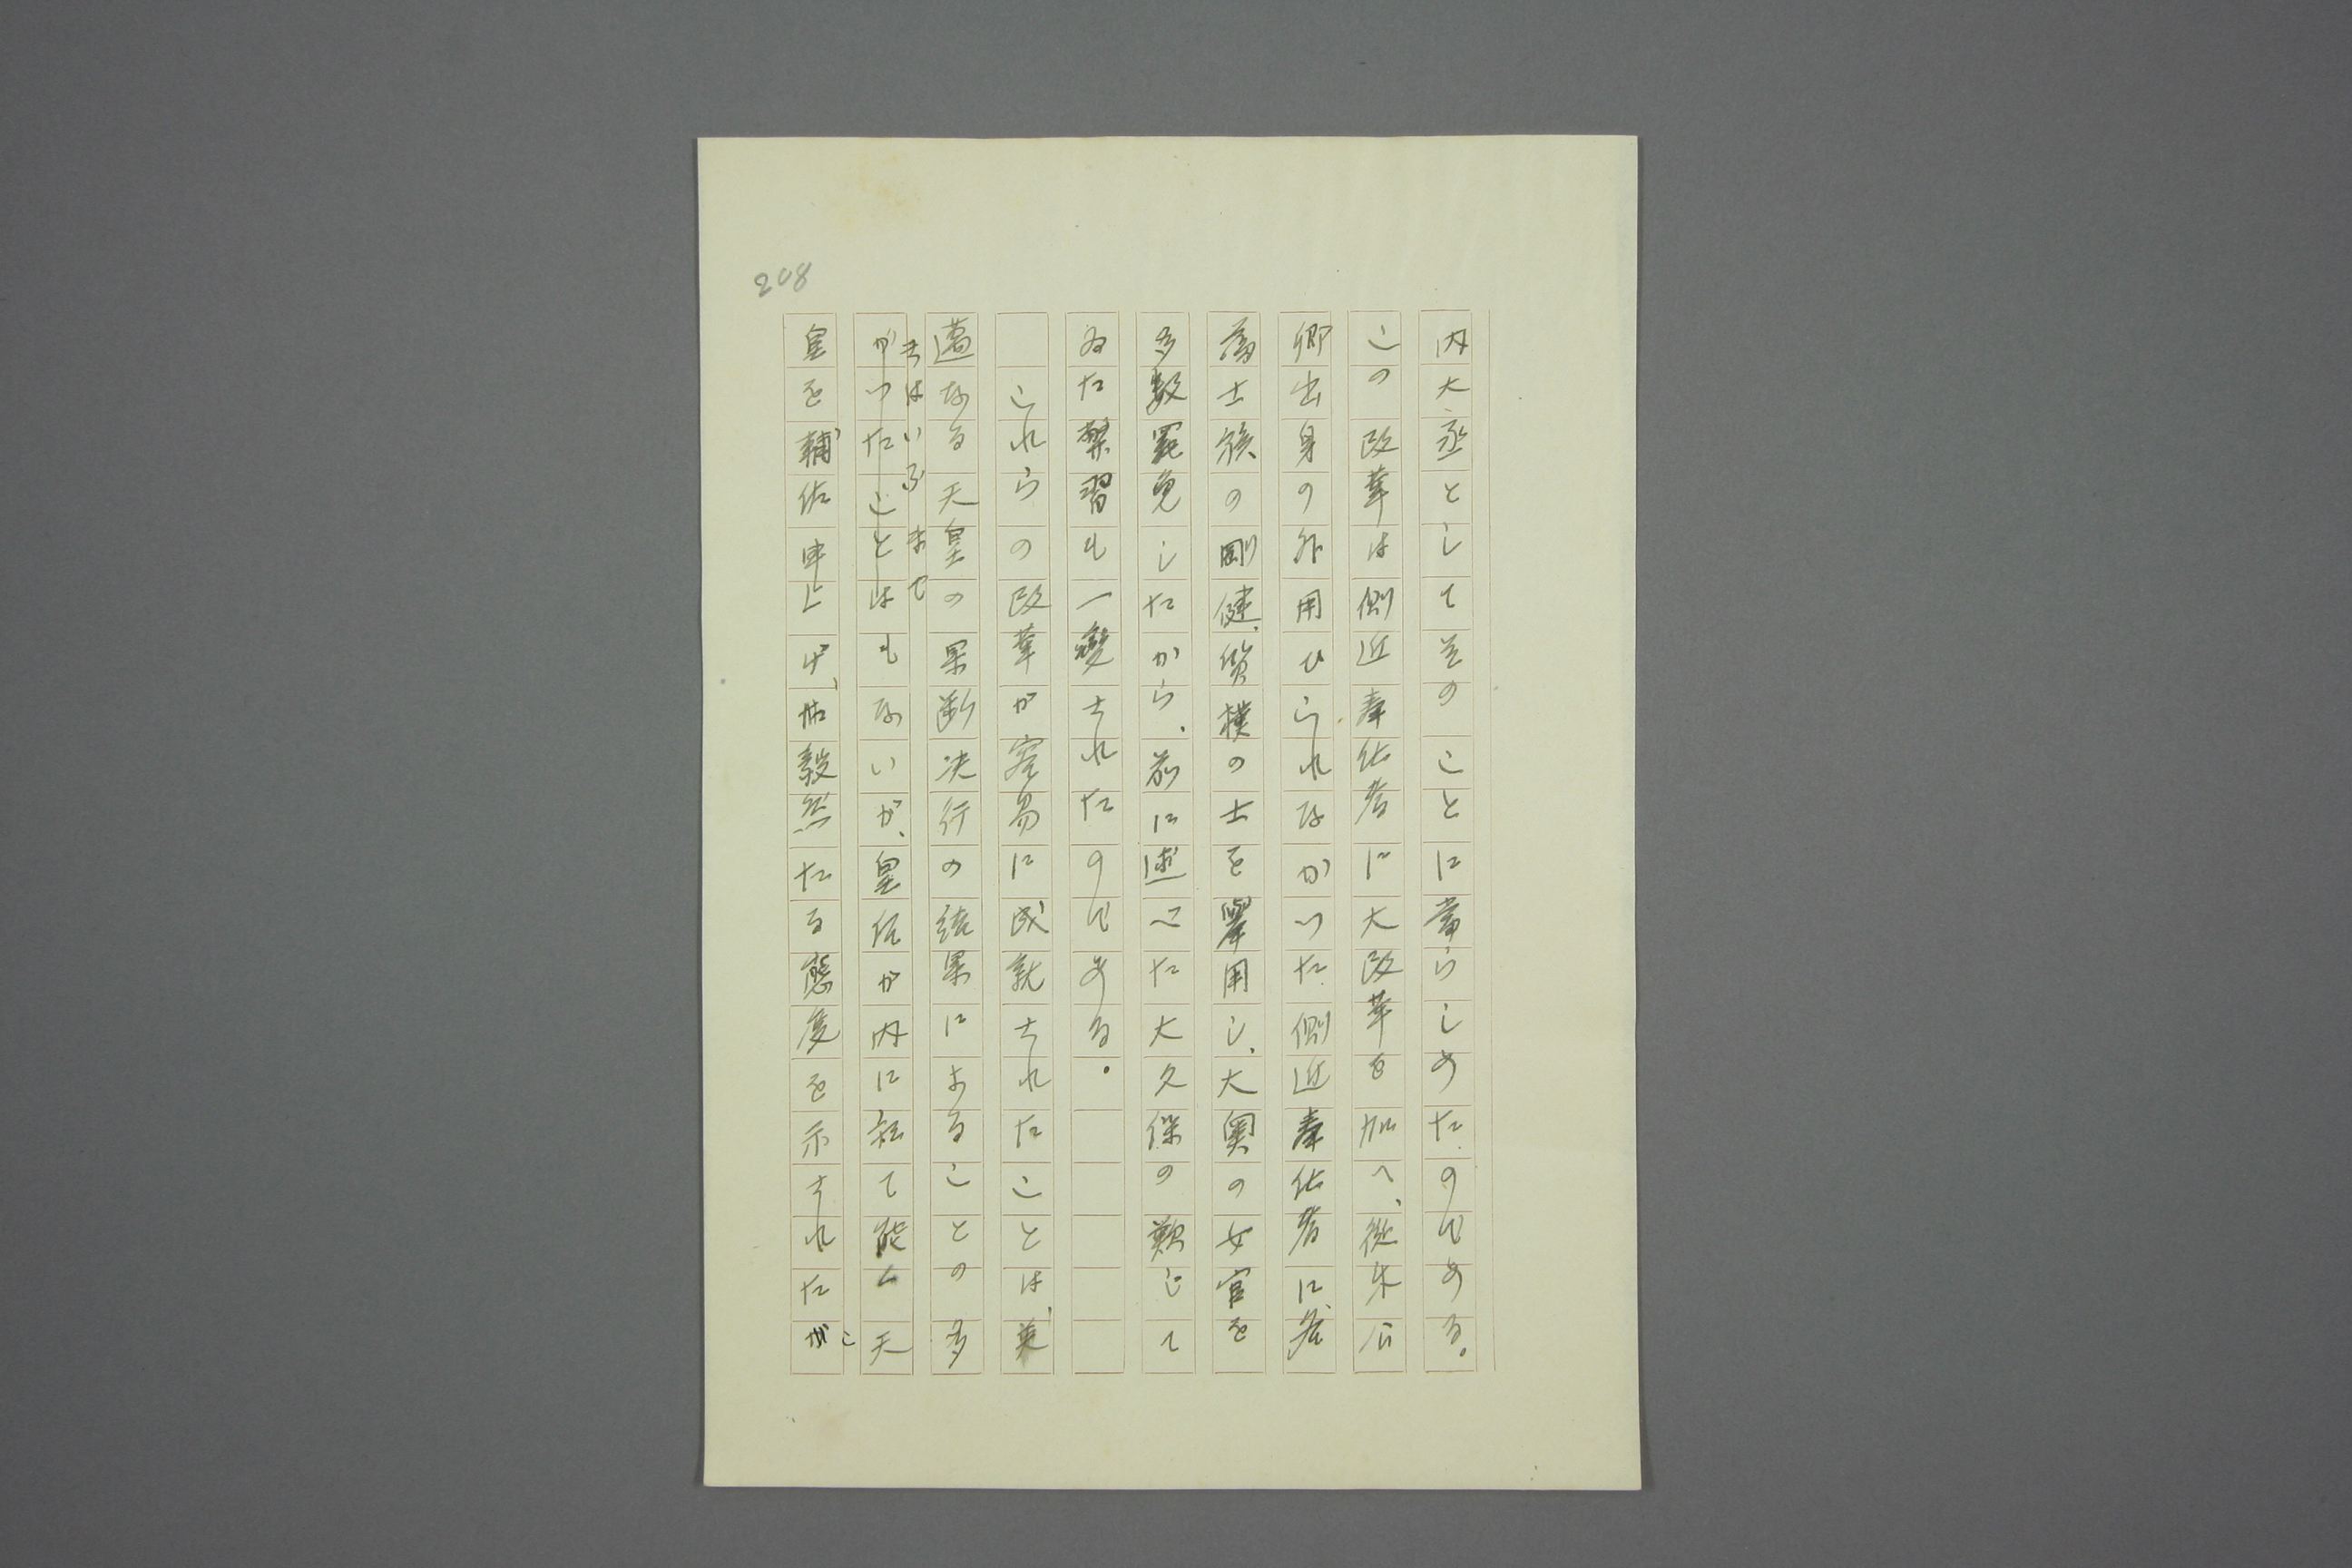 208
内大丞としてそのことに當らしめたのである。
この改革は側近奉仕者に大改革を加へ、從来公
卿出身の外用ひられなかつた側近奉仕者に、各
藩士族の剛健、質樸の士を擧用し、大奥の女官を
多数罷免したから、前に述べた大久保の歎じて
ゐた弊習も一變されたのである。
これらの改革が容易に成就されたことは、英
邁なる天皇の果断决行の結果によることの多
きはいふまで
かつたことはもないが、皇后が内に於て能く天
皇を輔佐申上げ、毅然たる態度を示されたが
こ